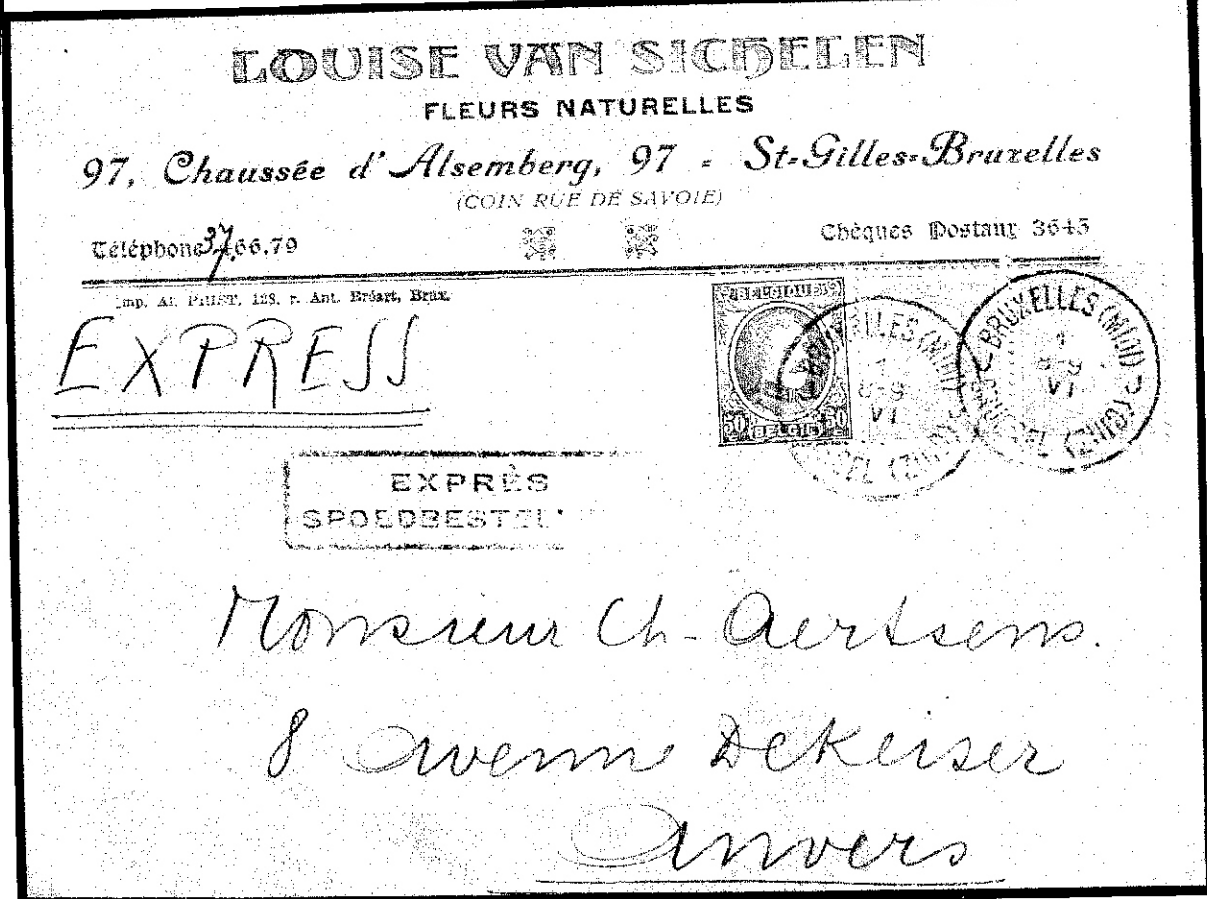 LOUISE VAN SICHELEN
FLEURS NATURELLES
97, Chaussée d'Alsemberg, 97 = St-Gilles-Bruxelles
(COIN RUE DE SAVOIE)
Téléphone 37.66.79
Chèques Postaux 3645
Imp. Al. 123, r. Ant. Bréart, Brux.
EXPRESS
BELGIQUE
50 BELGIË 50
BRUXELLES (MIDI)
1
8-9
VI
BRUSSEL (ZUID)
BRUXELLES (MIDI)
1
8-9
VI
BRUSSEL (ZUID)
EXPRÈS
SPOEDBESTEL
Monsieur Ch. Aertsens.
8 Avenue Dekeiser
Anvers